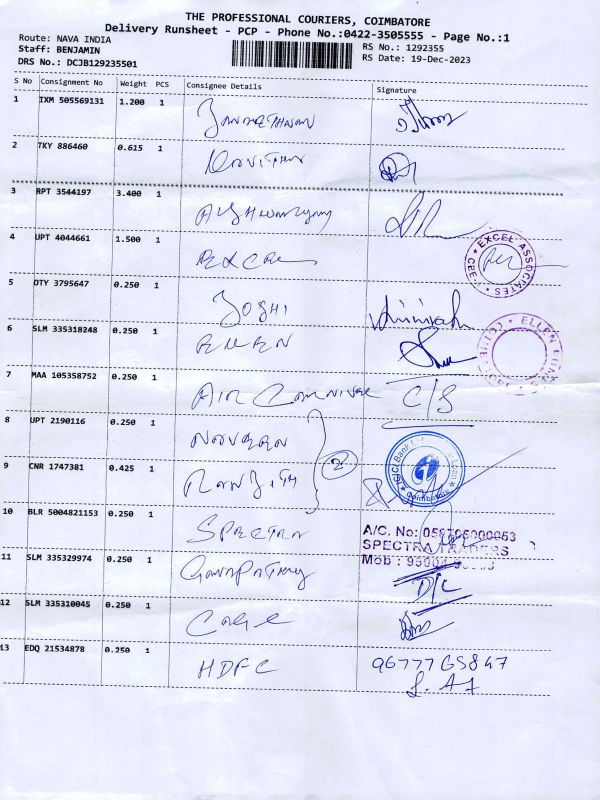 THE PROFESSIONAL COURIERS, COIMBATORE
Delivery Runsheet - PCP - Phone No.:0422-3505555 - Page No.:1
Route: NAVA INDIA RS No.: 1292355
Staff: BENJAMIN RS Date: 19-Dec-2023
DRS No.: DCJB129235501
S No Consignment No Weight PCS Consignee Details Signature
1 IXM 505569131 1.200 1
2 TKY 886460 0.615 1
3 RPT 3544197 3.400 1
4 UPT 4044661 1.500 1 EXCEL
EXCEL ASSOCIATES
CBE
5 DTY 3795647 0.250 1 JOSHI
6 SLM 335318248 0.250 1 ELLEN
ELLEN
7 MAA 105358752 0.250 1 AIR C/S
8 UPT 2190116 0.250 1 NAVEEN
9 CNR 1747381 0.425 1 RANJITH
2
ICICI Bank
Coimbatore
10 BLR 5004821153 0.250 1 SPECTRA
SPECTRA TRADERS
11 SLM 335329974 0.250 1 GANAPATHY D/C
12 SLM 335310045 0.250 1
13 EDQ 21534878 0.250 1 HDFC